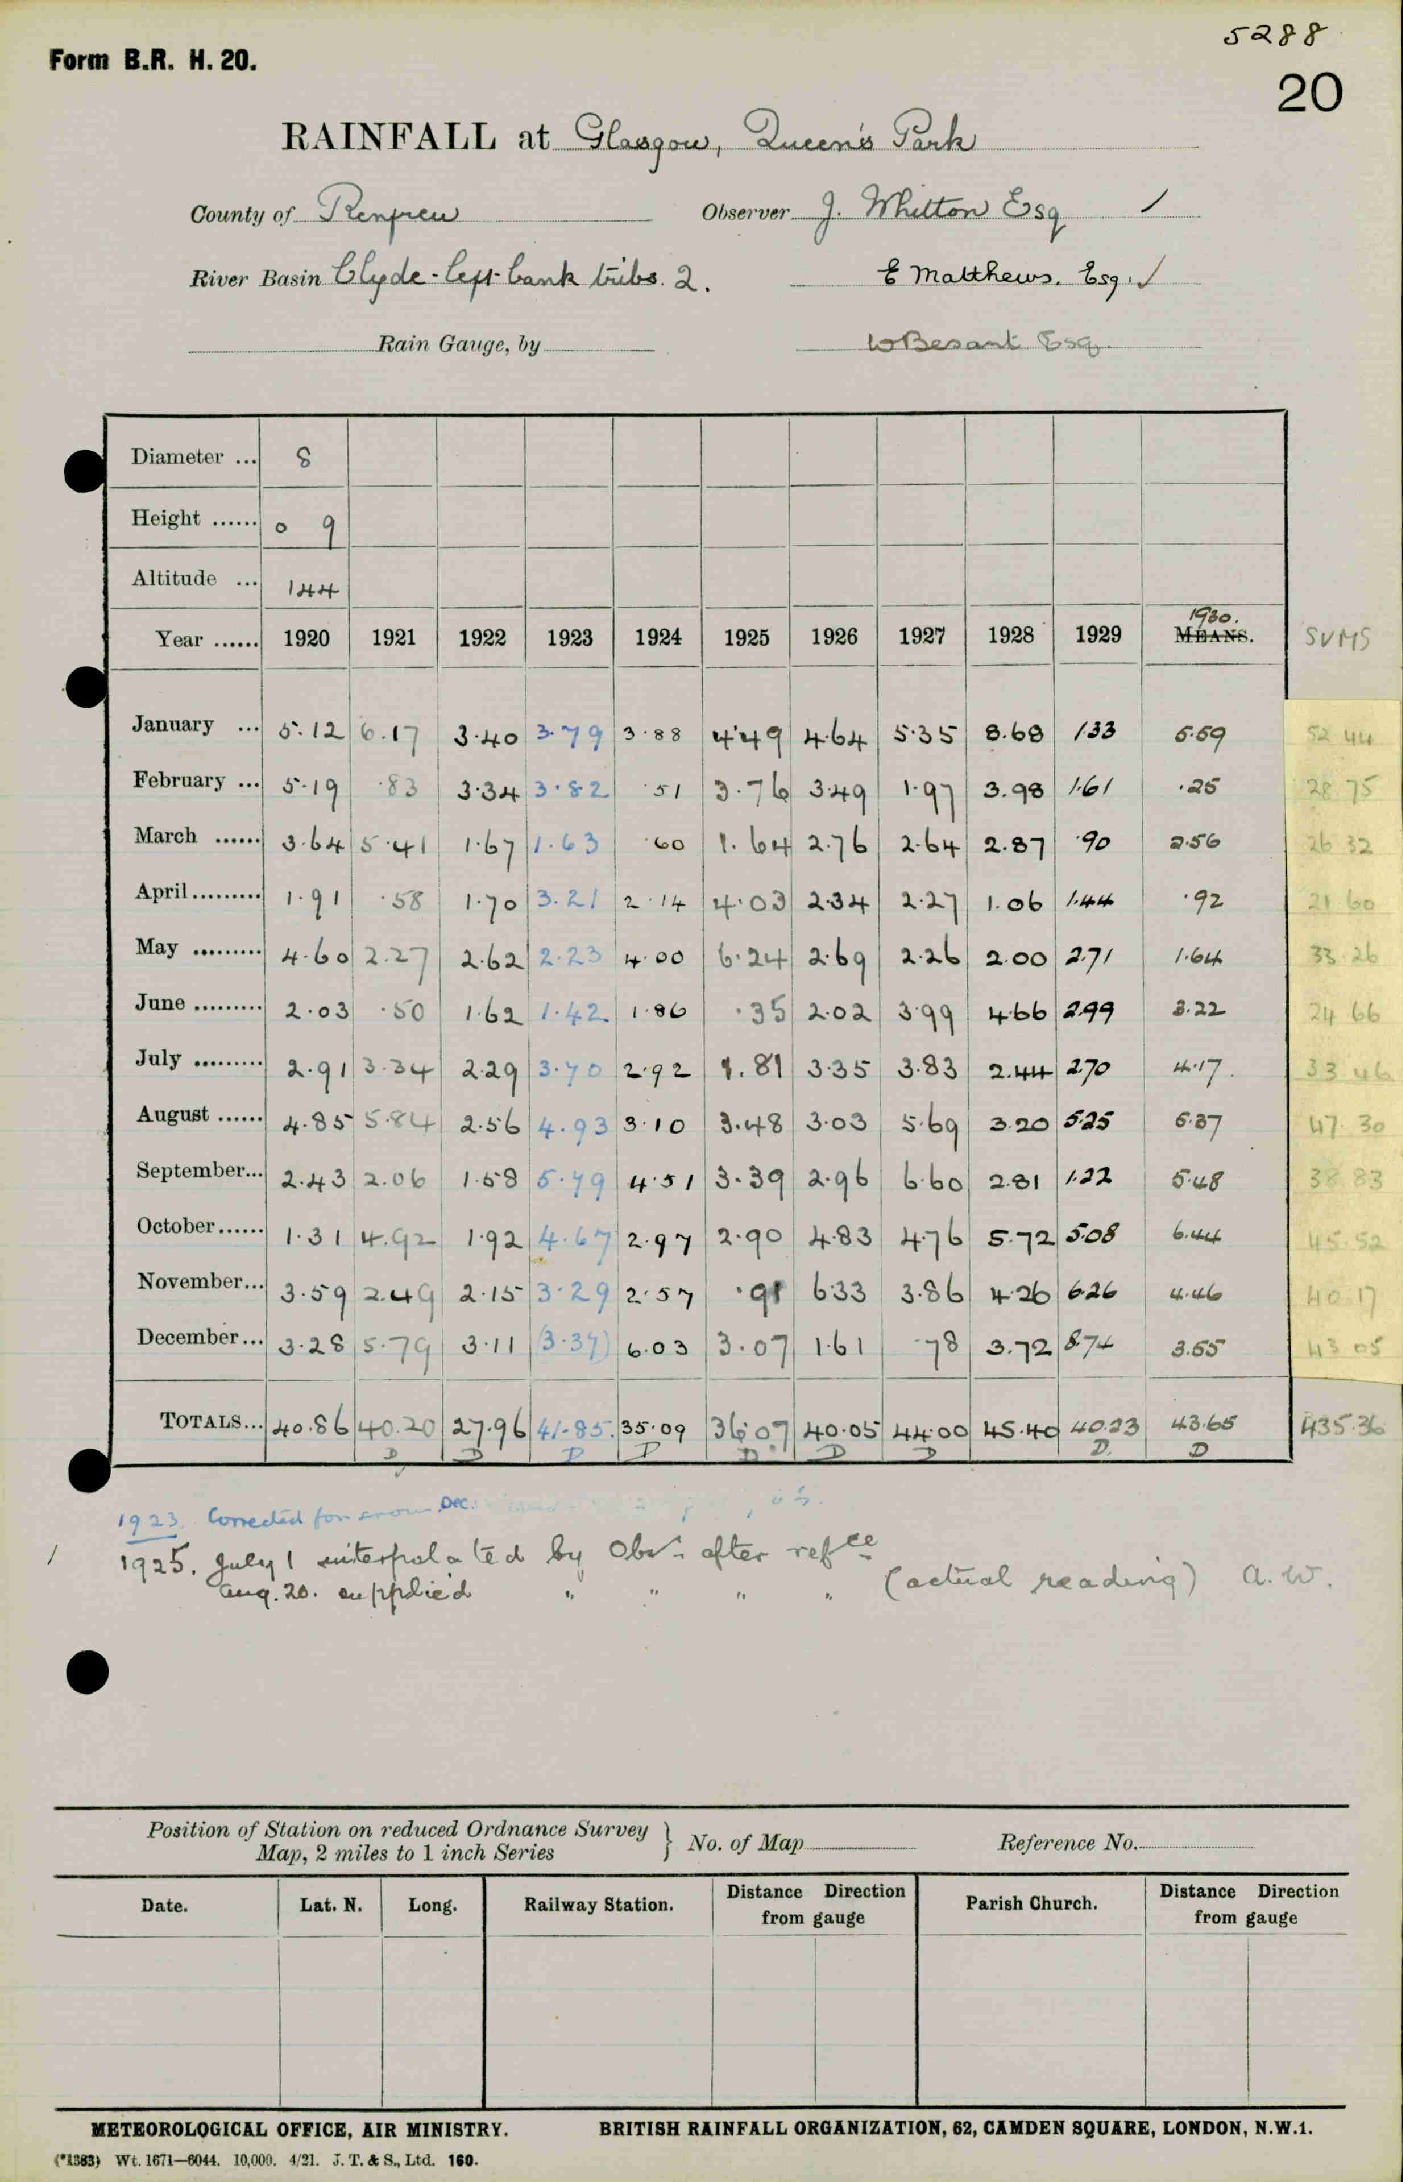 5288
Form B.R. H. 20.
20
RAINFALL at Glasgow, Queen's Park
County of Renfrew Observer J. Whitton Esq /
River Basin Clyde - left bank tribs. 2. E Matthews. Esq. ✓
Rain Gauge, by W Besant Esq.
Diameter ... 8
Height ...... 0 9
Altitude ... 144
1930.
Year ...... 1920 1921 1922 1923 1924 1925 1926 1927 1928 1929 MEANS. SUMS
January ... 5.12 6.17 3.40 3.79 3.88 4.49 4.64 5.35 8.68 1.33 5.59 52 44
February ... 5.19 .83 3.34 3.82 .51 3.76 3.49 1.97 3.98 1.61 .25 28.75
March ...... 3.64 5.41 1.67 1.63 .60 1.64 2.76 2.64 2.87 .90 2.56 26 32
April ......... 1.91 .58 1.70 3.21 2.14 4.03 2.34 2.27 1.06 1.44 .92 21 60
May ......... 4.60 2.27 2.62 2.23 4.00 6.24 2.69 2.26 2.00 2.71 1.64 33.26
June ......... 2.03 .50 1.62 1.42 1.86 .35 2.02 3.99 4.66 2.99 3.22 24 66
July ......... 2.91 3.34 2.29 3.70 2.92 1.81 3.35 3.83 2.44 2.70 4.17. 33 46
August ...... 4.85 5.84 2.56 4.93 3.10 3.48 3.03 5.69 3.20 5.25 6.37 47 30
September... 2.43 2.06 1.58 5.79 4.51 3.39 2.96 6.60 2.81 1.22 5.48 38 83
October...... 1.31 4.92 1.92 4.67 2.97 2.90 4.83 4.76 5.72 5.08 6.44 45.52
November... 3.59 2.49 2.15 3.29 2.57 .91 6.33 3.86 4.26 6.26 4.46 40.17
December... 3.28 5.79 3.11 (3.37) 6.03 3.07 1.61 .78 3.72 8.74 3.55 43 05
TOTALS... 40.86 40.20 27.96 41.85. 35.09 36.07 40.05 44.00 45.40 40.23 43.65 435.36
D D D D D D D D. D
1923. Corrected for snow Dec.
/ 1925. July 1 interpolated by Obsr. after refce
Aug. 20. supplied " " " " (actual reading) A.W.
Position of Station on reduced Ordnance Survey
Map, 2 miles to 1 inch Series } No. of Map Reference No.
Date. Lat. N. Long. Railway Station. Distance Direction from gauge Parish Church. Distance Direction from gauge
METEOROLOGICAL OFFICE, AIR MINISTRY. BRITISH RAINFALL ORGANIZATION, 62, CAMDEN SQUARE, LONDON, N.W.1.
(*1383) Wt. 1671—6044. 10,000. 4/21. J. T. & S., Ltd. 160.